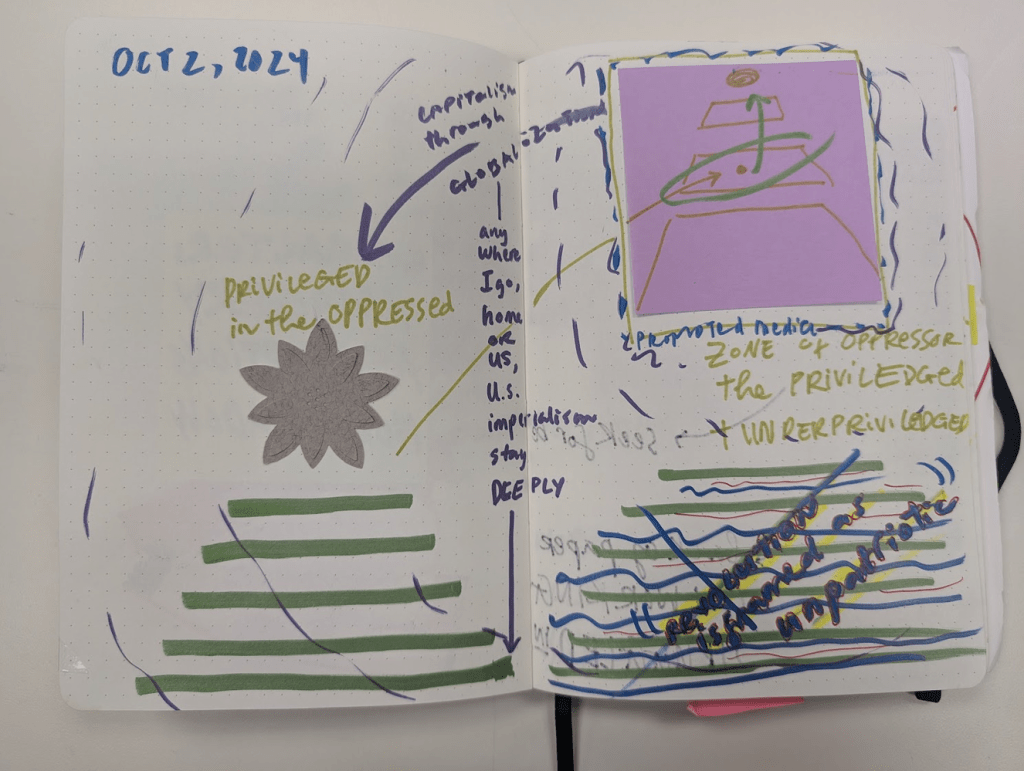 OCT 2, 2024
CAPITALISM
through
GLOBALIZATION
any
where
I go,
home
OR
US,
U.S.
imperialism
stay
DEEPLY
PRIVILEGED
in the OPPRESSED
PROMOTED media
ZONE of OPPRESSOR
the PRIVILEDGED
Y UNRERPRIVILEDGED
is framed as
unpatriotic